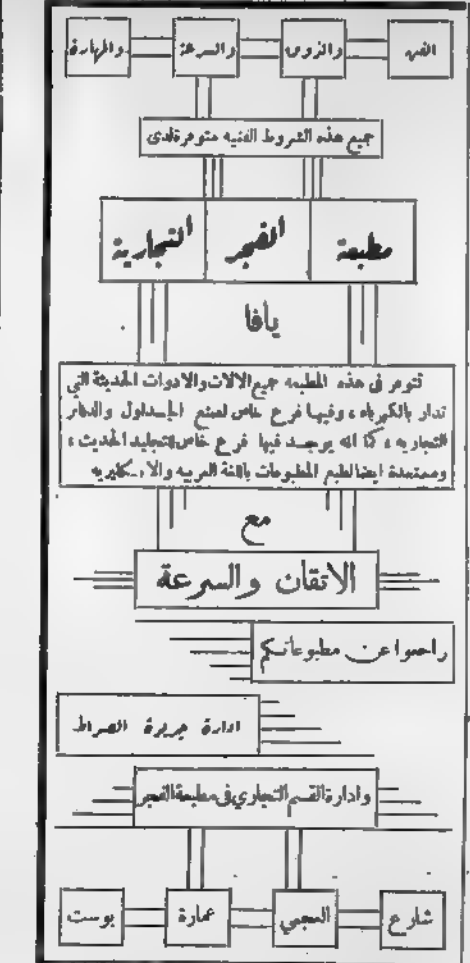 الفن والذوق والسرعة والمهارة
جميع هذه الشروط الفنيه متوفرة لدى
مطبعة الفجر التجارية
يافا
تتوفر في هذه المطبعه جميع الالات والادوات الحديثة التي
تدار بالكهرباء، وفيها فرع خاص لصنع الجداول والدفاتر
التجاريه، كما انه يوجد فيها فرع خاص لتجليد الحديث،
ومستعدة ايضا لطبع المطبوعات باللغة العربيه والانكليزيه
مع
الاتقان والسرعة
راجعوا عن مطبوعاتكم
ادارة جريدة الصراط
وادارة القسم التجاري في مطبعة الفجر
شارع العجمي عمارة بوست